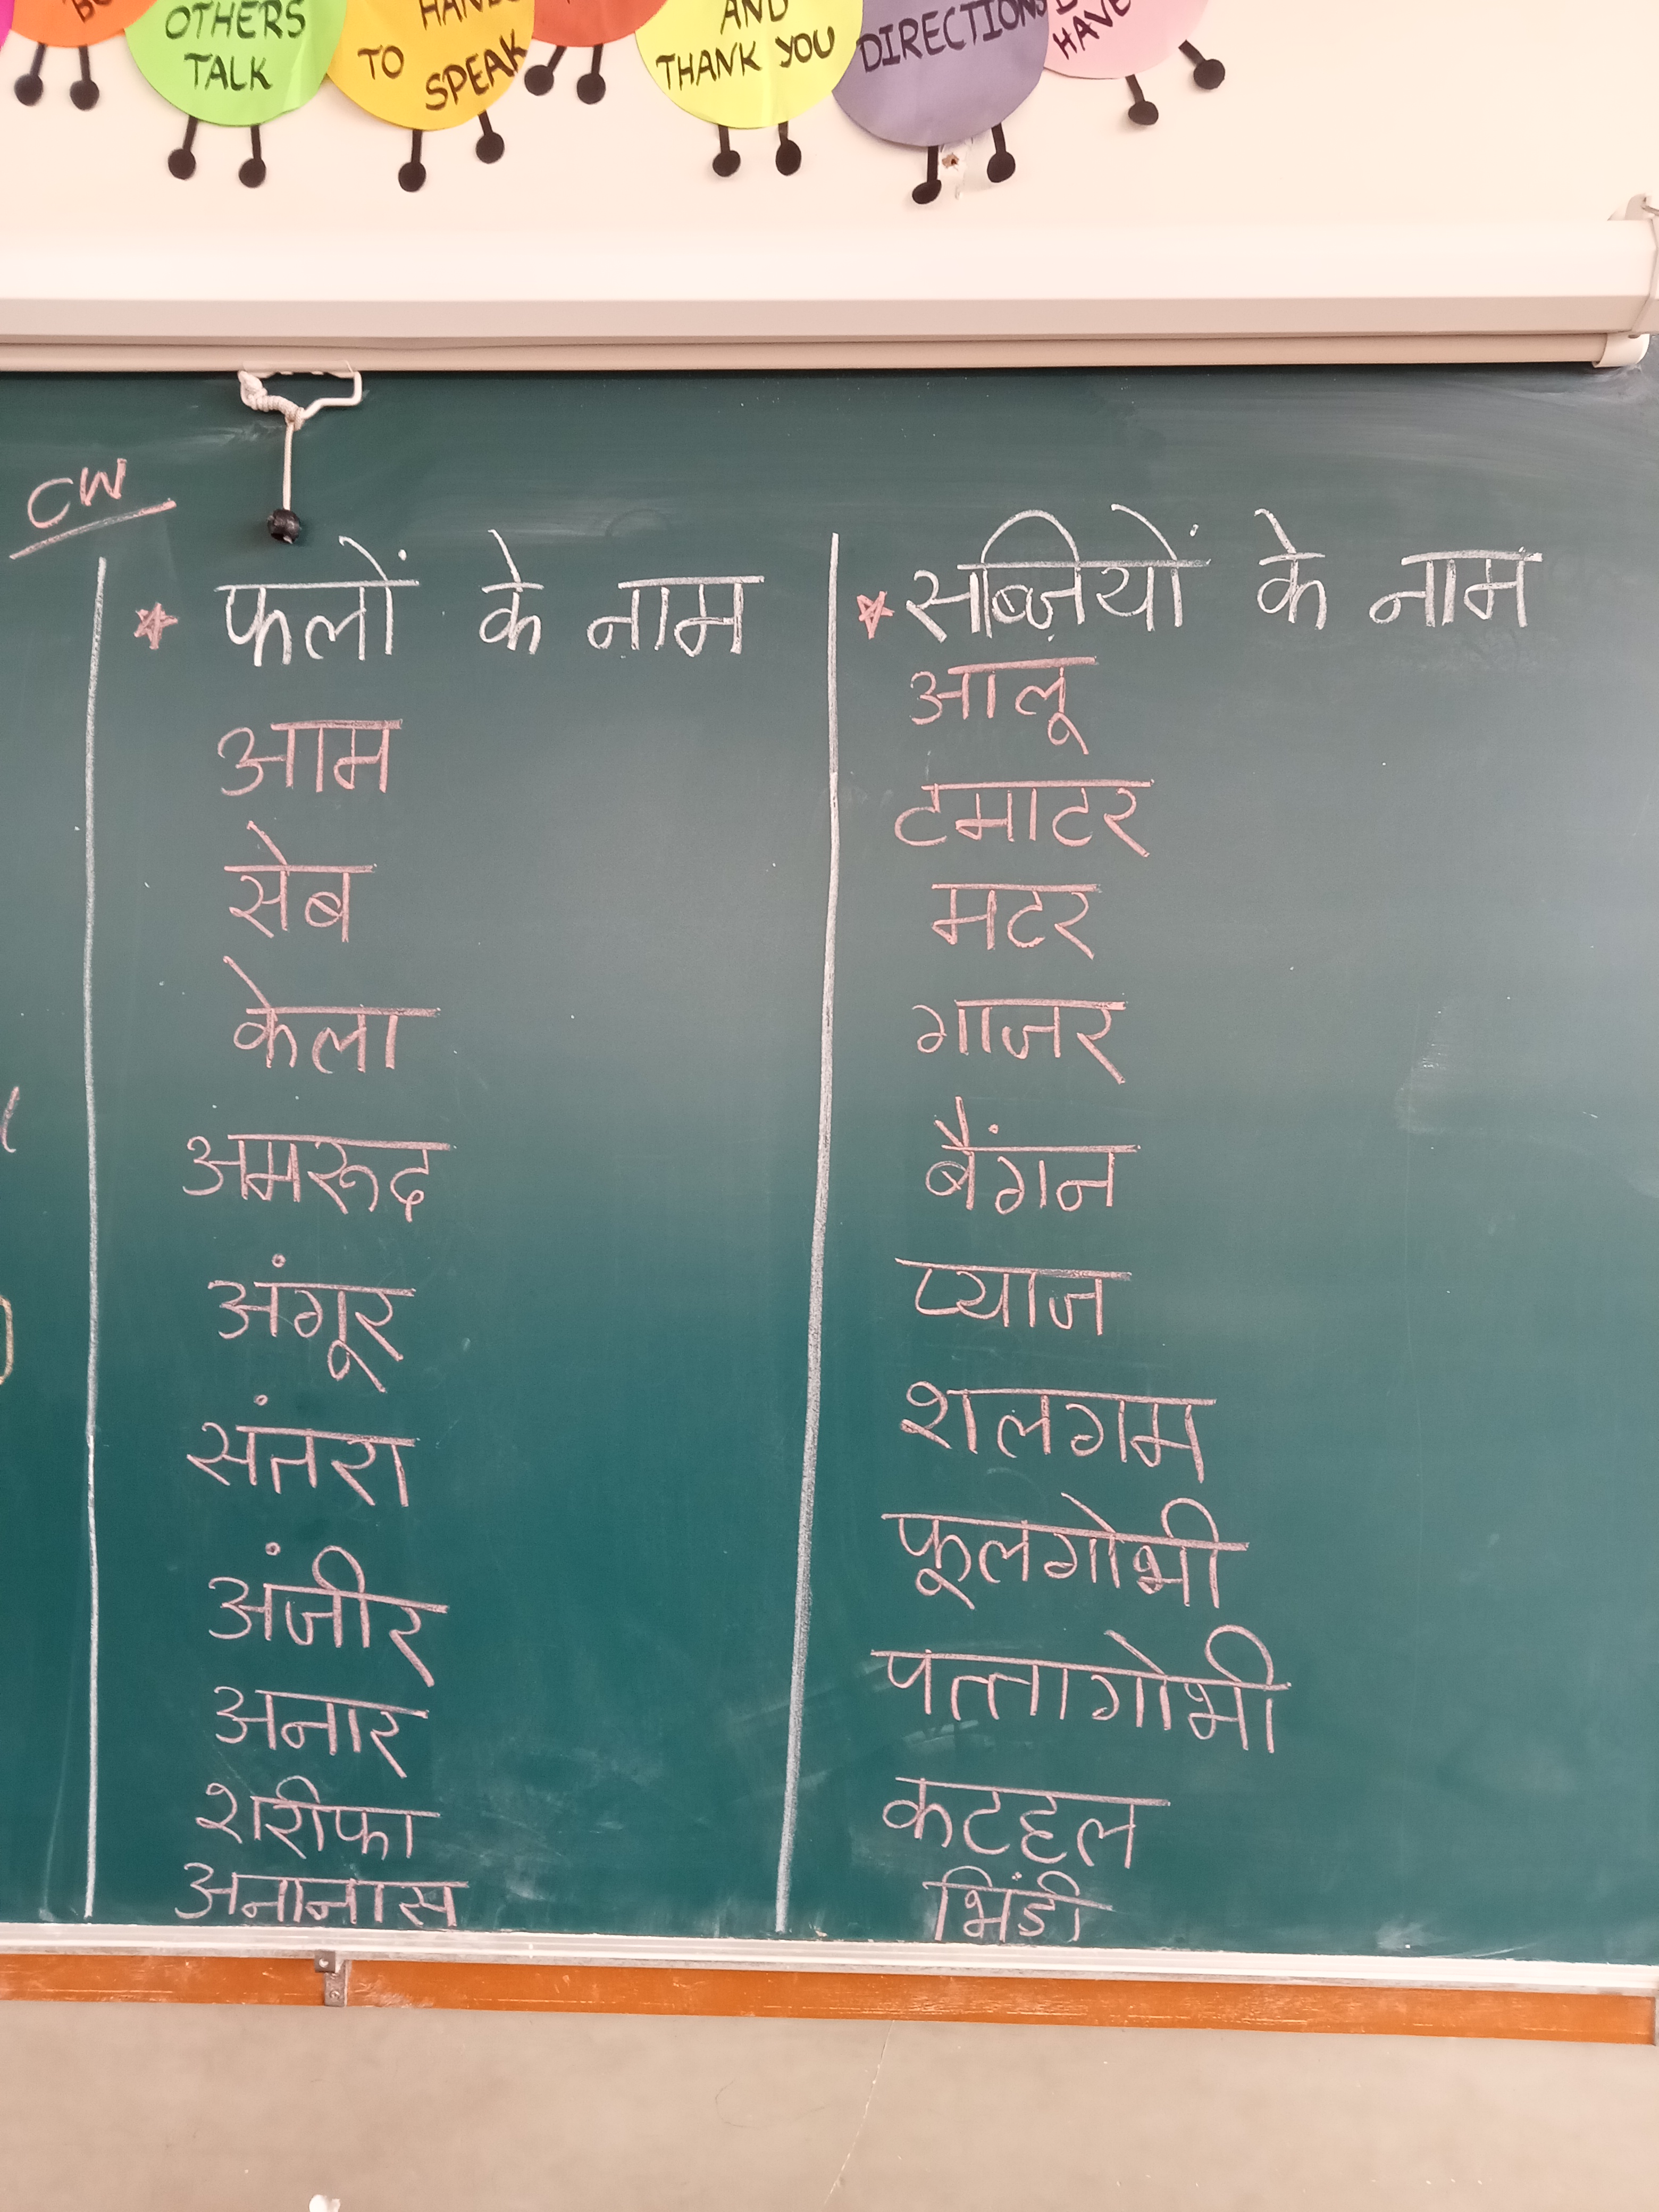 OTHERS
TALK
TO
SPEAK
AND
THANK YOU
DIRECTIONS
HAVE
CW
* फलों के नाम
आम
सेब
केला
अमरूद
अंगूर
संतरा
अंजीर
अनार
शरीफा
अनानास
* सब्ज़ियों के नाम
आलू
टमाटर
मटर
गाजर
बैंगन
प्याज
शलगम
फूलगोभी
पत्तागोभी
कटहल
भिंडी